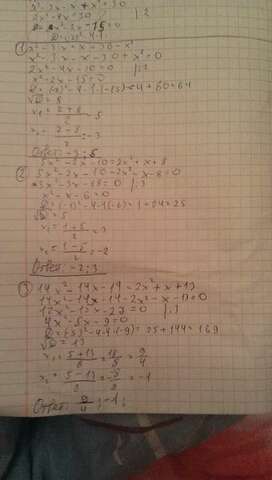 x²-3x-x+x²=30
2x²-4x=30 | :2
x²-2x-15=0
① x²-3x=x+30-x²
x²-3x-x-30+x²=0
2x²-4x-30=0 | :2
x²-2x-15=0
D=(-2)²-4·1·(-15)=4+60=64
√D=8
x₁=(2+8)/2=5
x₂=(2-8)/2=-3
Ответ: -3; 5
② 5x²-2x-10=2x²+x+8
5x²-2x-10-2x²-x-8=0
3x²-3x-18=0 | :3
x²-x-6=0
D=(-1)²-4·1·(-6)=1+24=25
√D=5
x₁=(1+5)/2=3
x₂=(1-5)/2=-2
Ответ: -2; 3
③ 14x²-14x-14=2x²+x+13
14x²-14x-14-2x²-x-13=0
12x²-15x-27=0 | :3
4x²-5x-9=0
D=(-5)²-4·4·(-9)=25+144=169
√D=13
x₁=(5+13)/8=18/8=9/4
x₂=(5-13)/8=-8/8=-1
Ответ: 9/4; -1;